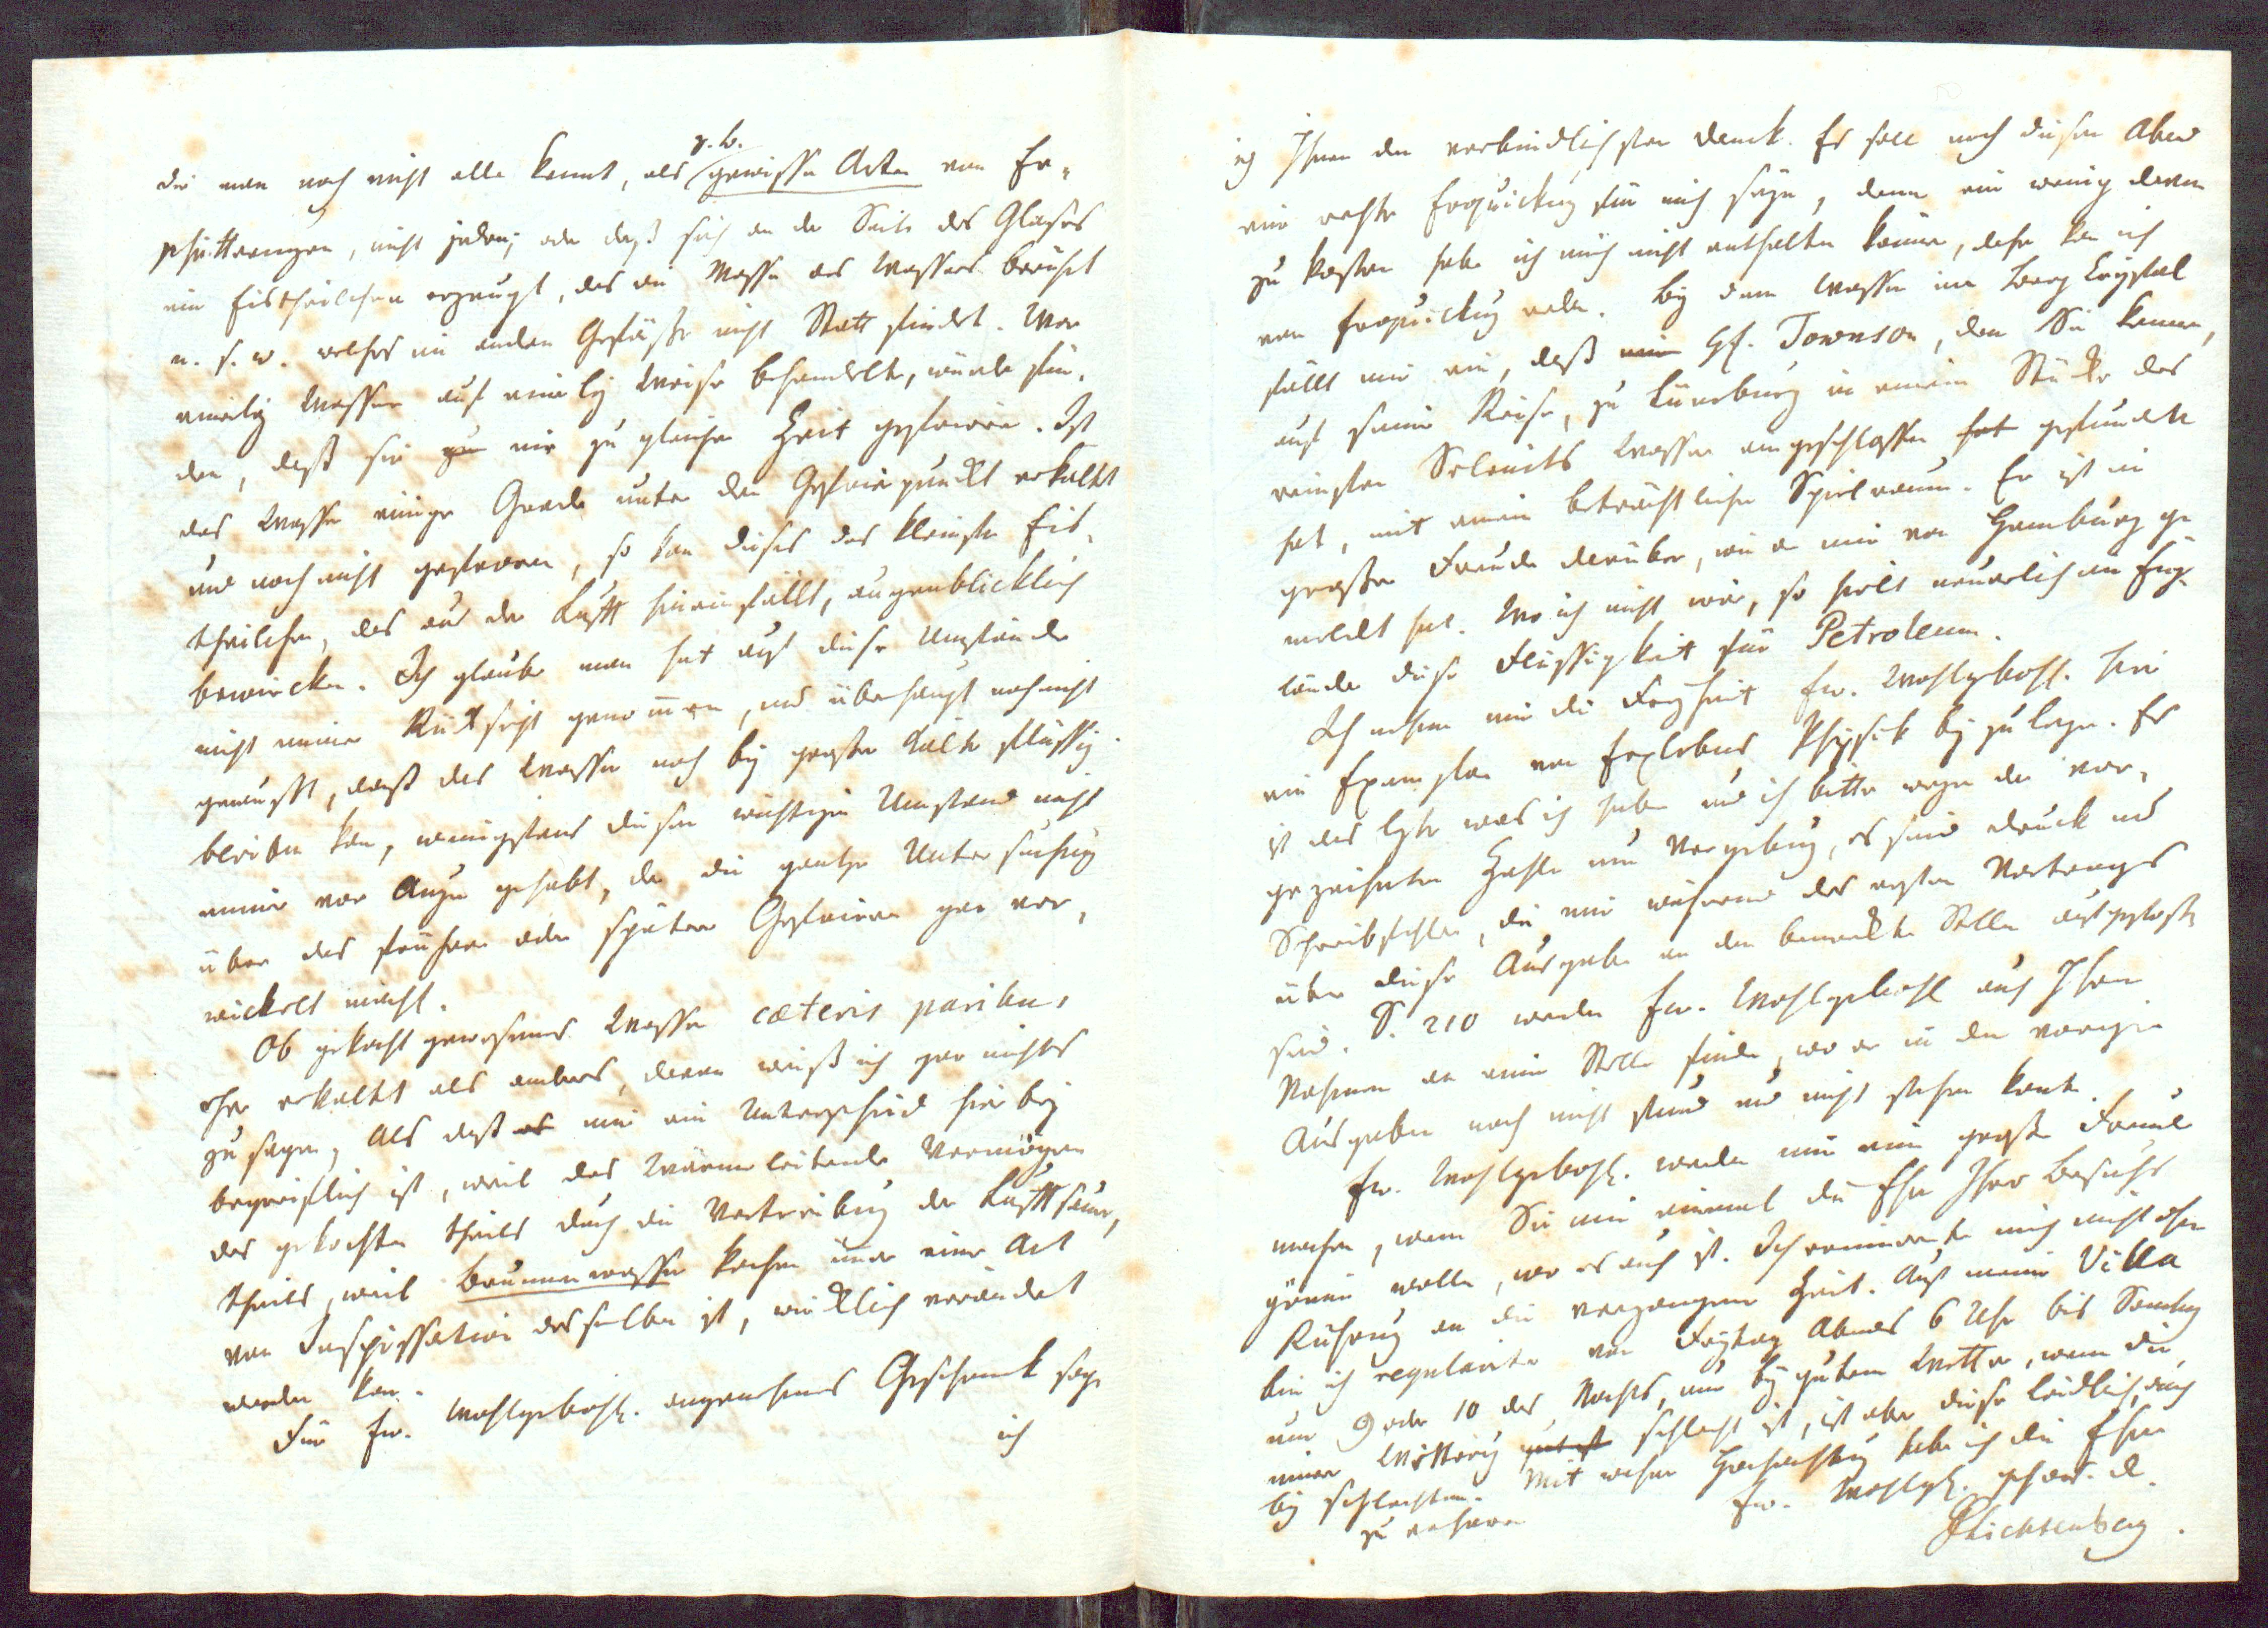 z. B.
die man noch nicht alle kennt, als gewisse Arten von Er-
schütterungen, nicht jeder; oder daß sich an der Seite des Glases
ein Eistheilchen erzeugt, das die Masse des Wassers berührt
u. s. w. welches im andern Gefäße nicht Statt findet. Wer
einerley Wasser auf einerley Weise behandelte, würde fin-
den, daß sie nie zu gleicher Zeit gefrieren. Ist
das Wasser einige Grade unter den Gefrierpunckt erkaltet
und noch nicht gefroren, so kan dieses das kleinste Eis-
theilchen, das aus der Lufft hineinfällt, augenblicklich
bewircken. Ich glaube man hat auf diese Umstände
nicht immer Rücksicht genommen, und überhaupt noch nicht
gewußt, daß das Wasser noch bey großer Kälte flüssig
bleiben kan, wenigstens diesen wichtigen Umstand nicht
immer vor Augen gehabt, der die gantze Untersuchung
über das frühere oder spätere Gefrieren gar ver-
wickelt macht.
Ob gekocht gewesenes Wasser cæteris paribus
eher erkaltet als anderes, davon weiß ich gar nichts
zu sagen, als daß mir ein Unterschied hierbey
begreiflich ist, weil das Wärme leitende Vermögen
des gekochten theils durch die Vertreibung der Lufftsäure,
theils, weil Brunnenwasser kochen immer eine Art
von Inspissation desselben ist, wircklich verändert
werden kan.
Für Ew. Wohlgebohr. angenehmes Geschenck sage
ich
ich Ihnen den verbindlichsten Danck. Es soll noch diesen Abend
eine rechte Erquickung für mich seyn, denn ein wenig davon
zu kosten habe ich mich nicht enthalten können, daher kan ich
von Erquickung reden. Bey dem Wasser im Berg Crystal
fällt mir ein, daß HE. Townson, den Sie kennen,
auf seiner Reise, zu Lüneburg in einem Stücke des
reinsten Selenits Wasser eingeschlossen hat gefunden
hat, mit einem beträchtlichen Spielraum. Er ist in
großer Freude darüber, wie er mir von Hamburg ge-
meldet hat. Wo ich nicht irre, so hielt neuerlich ein Eng-
länder diese Flüssigkeit für Petroleum.
Ich nehme mir die Freyheit Ew. Wohlgebohr. hier
ein Exemplar von Erxlebens Physick bey zu legen. Es
ist das letzte was ich habe und ich bitte wegen der vor-
gezeichneten Zahlen um Vergebung, es sind Druck und
Schreibfehler, die mir während des ersten Vortrags
über diese Ausgabe an den bemerckten Stellen aufgestoßen
sind. S. 210 werden Ew. Wohlgebohr auch Ihren
Nahmen an einer Stelle finden, wo er in der vorigen
Ausgabe noch nicht stund und nicht stehen konte.
Ew. Wohlgebohr. werden mir eine große Freude
machen, wenn Sie mir einmal die Ehre Ihres Besuchs
gönnen wollen, wo es auch ist. Ich erinnerte mich nicht ohne
Rührung an die vergangene Zeit. Auf meiner Villa
bin ich regulariter von Freytag Abends 6 Uhr bis Sonntag
um 9 oder 10 des Nachts, nur bey gutem Wetter, wenn die
innere Witterung gut ist schlecht ist, ist aber diese leidlich, auch
bey schlechtem. Mit wahrer Hochachtung habe ich die Ehre
zu verharren
Ew. Wohlgeb. gehors. D.
GCLichtenberg.